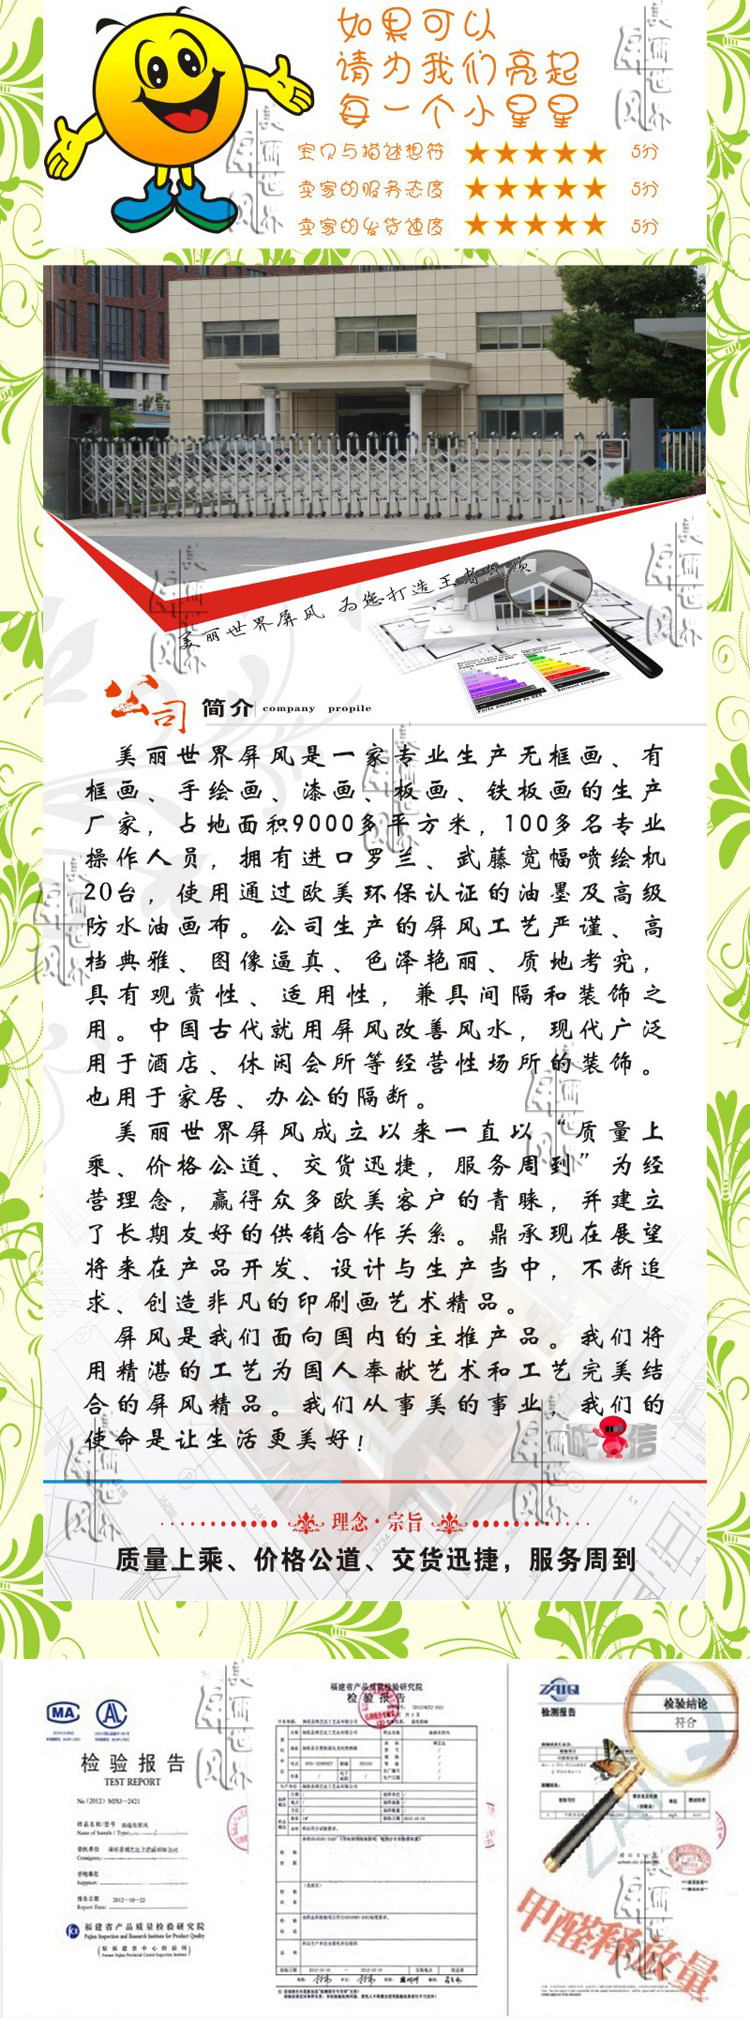 如果可以
请为我们亮起
每一个小星星
宝贝与描述想符 ★★★★★ 5分
卖家的服务态度 ★★★★★ 5分
卖家的发货速度 ★★★★★ 5分
美丽世界屏风
美丽世界屏风 为您打造王者气质
公司 简介 company propile
美丽世界屏风是一家专业生产无框画、有
框画、手绘画、漆画、板画、铁板画的生产
厂家，占地面积9000多平方米，100多名专业
操作人员，拥有进口罗兰、武藤宽幅喷绘机
20台，使用通过欧美环保认证的油墨及高级
防水油画布。公司生产的屏风工艺严谨、高
档典雅、图像逼真、色泽艳丽、质地考究，
具有观赏性、适用性，兼具间隔和装饰之
用。中国古代就用屏风改善风水，现代广泛
用于酒店、休闲会所等经营性场所的装饰。
也用于家居、办公的隔断。
美丽世界屏风成立以来一直以“质量上
乘、价格公道、交货迅捷，服务周到”为经
营理念，赢得众多欧美客户的青睐，并建立
了长期友好的供销合作关系。鼎承现在展望
将来在产品开发、设计与生产当中，不断追
求、创造非凡的印刷画艺术精品。
屏风是我们面向国内的主推产品。我们将
用精湛的工艺为国人奉献艺术和工艺完美结
合的屏风精品。我们从事美的事业，我们的
使命是让生活更美好！
诚信
理念·宗旨
质量上乘、价格公道、交货迅捷，服务周到
MA
检验报告
TEST REPORT
No.(2012) MJSJ—2421
样品名称/型号
Name of Sample / Type
委托单位
报告日期 2012-10-22
Report Date:
福建省产品质量检验研究院
Fujian Inspection and Research Institute for Product Quality
福建省产品质量检验研究院
检验报告
检测报告
检验结论
符合
甲醛释放量